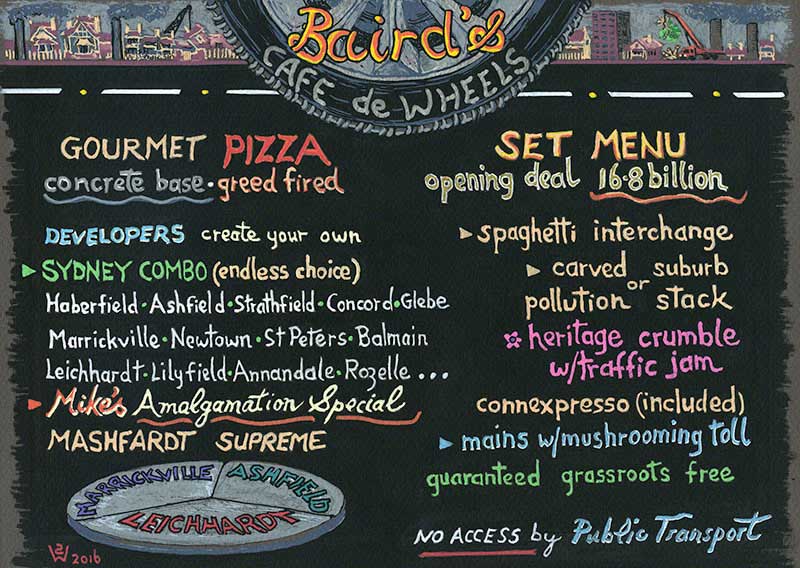 Baird's
CAFE de WHEELS
GOURMET PIZZA
concrete base • greed fired
DEVELOPERS create your own
SYDNEY COMBO (endless choice)
Haberfield • Ashfield • Strathfield • Concord • Glebe
Marrickville • Newtown • St Peters • Balmain
Leichhardt • Lilyfield • Annandale • Rozelle ...
Mike's Amalgamation Special
MASHFARDT SUPREME
MARRICKVILLE
ASHFIELD
LEICHHARDT
2016
SET MENU
opening deal 16·8 billion
spaghetti interchange
carved suburb
or
pollution stack
heritage crumble
w/traffic jam
connexpresso (included)
mains w/mushrooming toll
guaranteed grassroots free
NO ACCESS by Public Transport